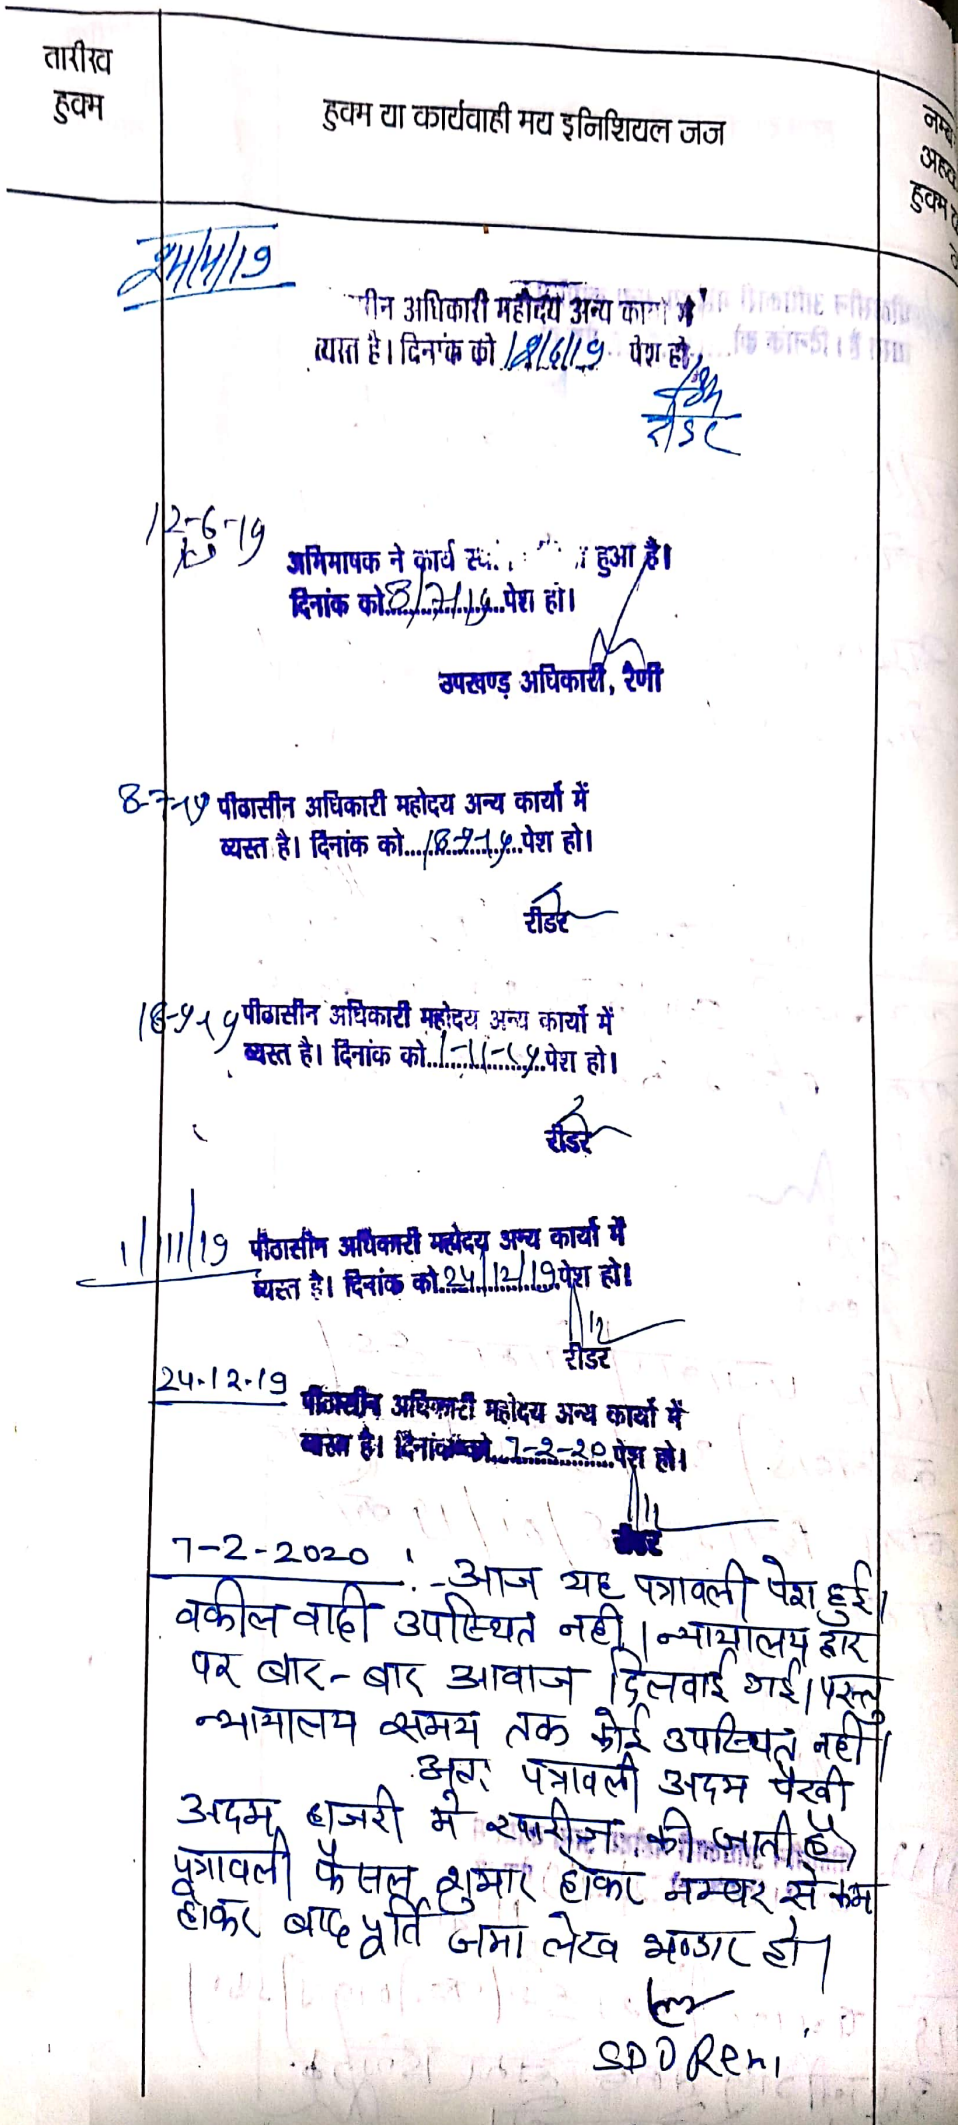 तारीख
हुक्म
हुक्म या कार्यवाही मय इनिशियल जज
अहका
हुक्म
24/4/19
अधिकारी महोदय अन्य कार्यो में
व्यस्त है। दिनांक को 12/6/19 पेश हो
रीडर
12-6-19
अभिभाषक ने कार्य हुआ है।
दिनांक को 8/7/19 पेश हो।
उपखण्ड अधिकारी, रैणी
8-7-19 पीठासीन अधिकारी महोदय अन्य कार्यो में
व्यस्त है। दिनांक को...18-9-19..पेश हो।
रीडर
18-9-19 पीठासीन अधिकारी महोदय अन्य कार्यो में
व्यस्त है। दिनांक को..1-11-19..पेश हो।
रीडर
1/11/19 पीठासीन अधिकारी महोदय अन्य कार्यो में
व्यस्त है। दिनांक को 24/12/19 पेश हो।
रीडर
24.12.19 पीठासीन अधिकारी महोदय अन्य कार्यो में
व्यस्त है। दिनांक को...7-2-20 पेश हो।
रीडर
7-2-2020 :- आज यह पत्रावली पेश हुई।
वकील वादी उपस्थित नही। न्यायालय द्वार
पर बार-बार आवाज दिलवाई गई। परन्तु
न्यायालय समय तक कोई उपस्थित नही।
अतः पत्रावली अदम पैरवी
अदम हाजरी मे खारीज की जाती है
पत्रावली फैसल शुमार होकर नम्बर से कम
होकर बाद पूर्ति जमा लेख भण्डार हो।
SDO Reni